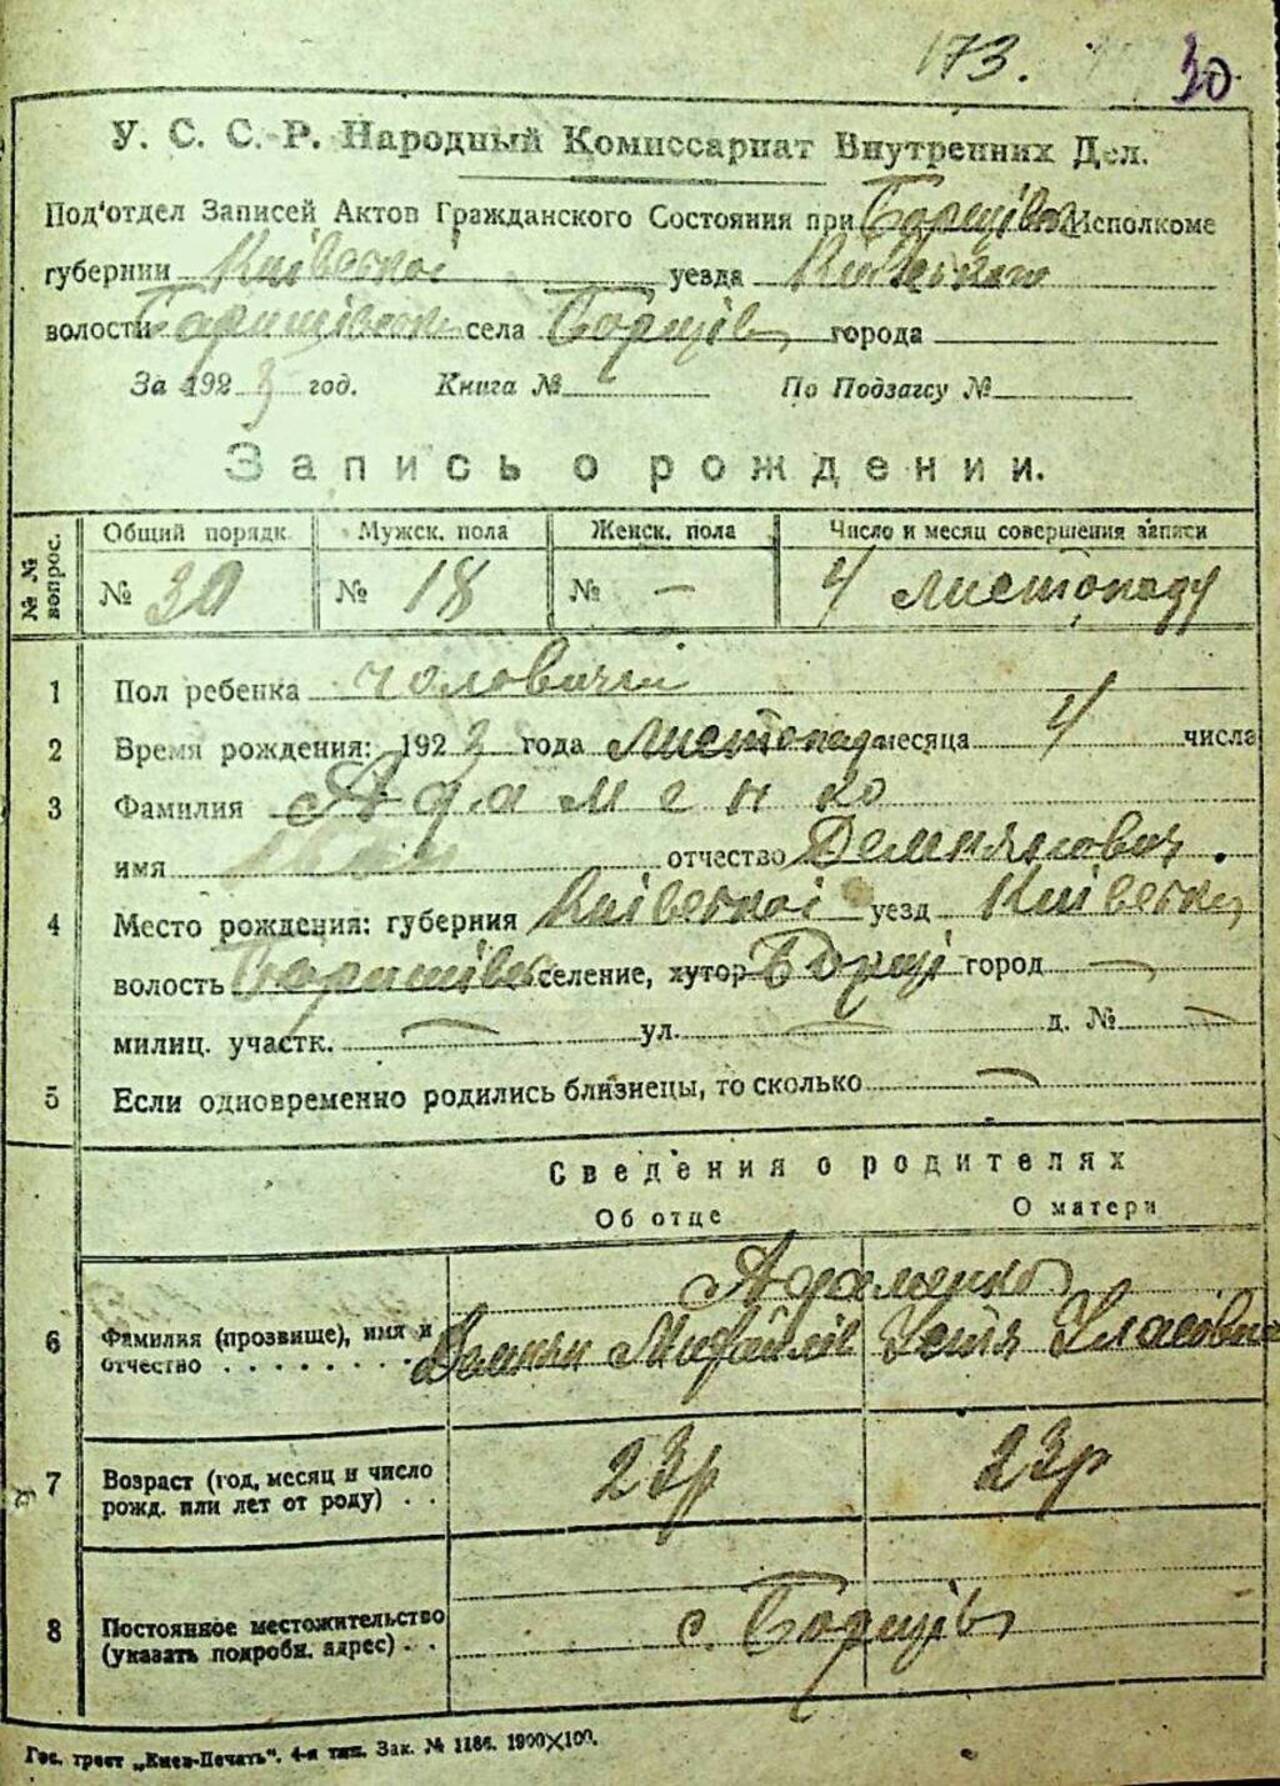 173. 30
У. С. С. Р. Народный Комиссариат Внутренних Дел.
Под'отдел Записей Актов Гражданского Состояния при Борщівск Исполкоме
губернии Київської уезда Київського
волости Баришівськ села Борщів города
За 1923 год. Книга № По Подзагсу №
Запись о рождении.
№ № вопрос. Общий порядк. Мужск. пола Женск. пола Число и месяц совершения записи
№ 30 № 18 № — 4 листопаду
1 Пол ребенка чоловічий
2 Время рождения: 1923 года листопад месяца 4 числа
3 Фамилия Адаменко
имя Іван отчество Демянович.
4 Место рождения: губерния Київської уезд Київськ
волость Баришівськ селение, хутор Борщі город —
милиц. участк. — ул. — д. № —
5 Если одновременно родились близнецы, то сколько —
Сведения о родителях
Об отце О матери
Адаменко
6 Фамилия (прозвище), имя и Демьян Михайлів Устя Уласовна
отчество . . . . . . . .
7 Возраст (год, месяц и число 23р 23р
рожд. или лет от роду) . .
8 Постоянное местожительство с. Борщів
(указать подробн. адрес) . .
Гос. трест „Киев-Печать“. 4-я тип. Зак. № 1186. 1900×100.